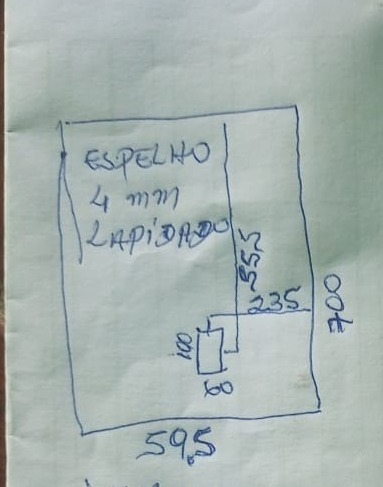 ESPELHO
4 mm
LAPIDADO
555
235
700
100
60
59,5